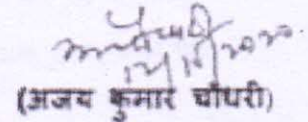 12/10/2020
(अजय कुमार चौधरी)